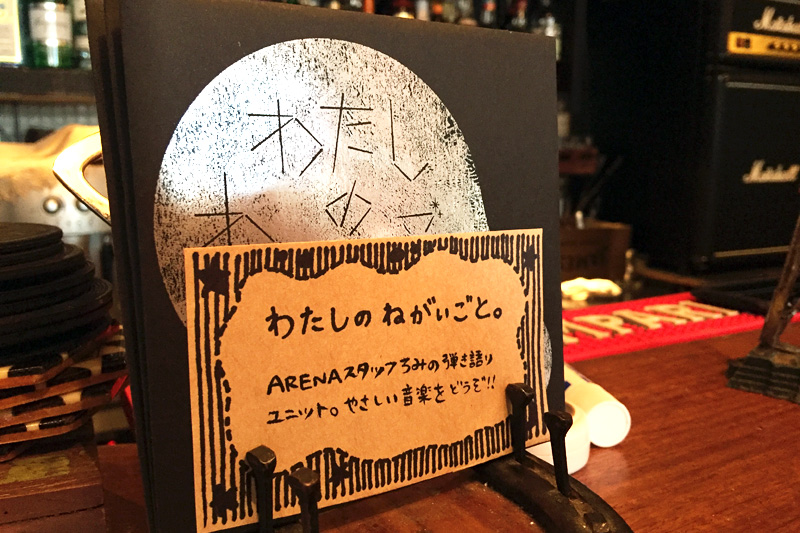 わたし
わたしの ねがいごと。
ARENAスタッフろみの弾き語り
ユニット。やさしい音楽をどうぞ!!
Marshall
Marshall
MPARI